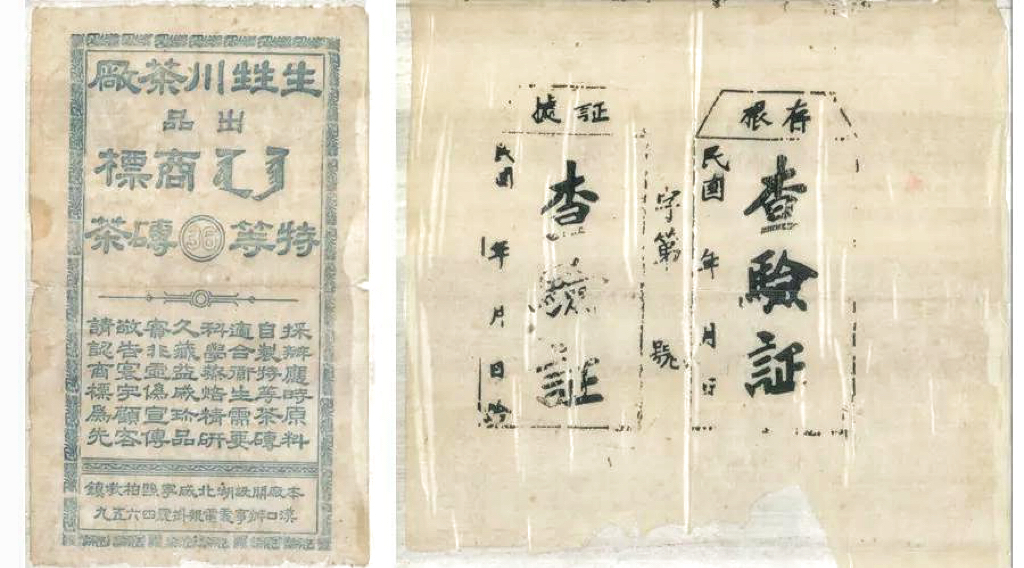 生甡川茶廠
出品
商標
特等36磚茶
採辦應時原料
自製特等茶磚
適合衛生需要
科學藥焙精研
久藏益成珍品
審非虛偽宣傳
敬告寰宇顧客
請認商標爲先
本廠開設湖北咸寧縣柏墩鎮
漢口辦事處電報掛號四六五九
存根
查驗証
民國 年 月 日
字第 號
証據
查驗証
民國 年 月 日